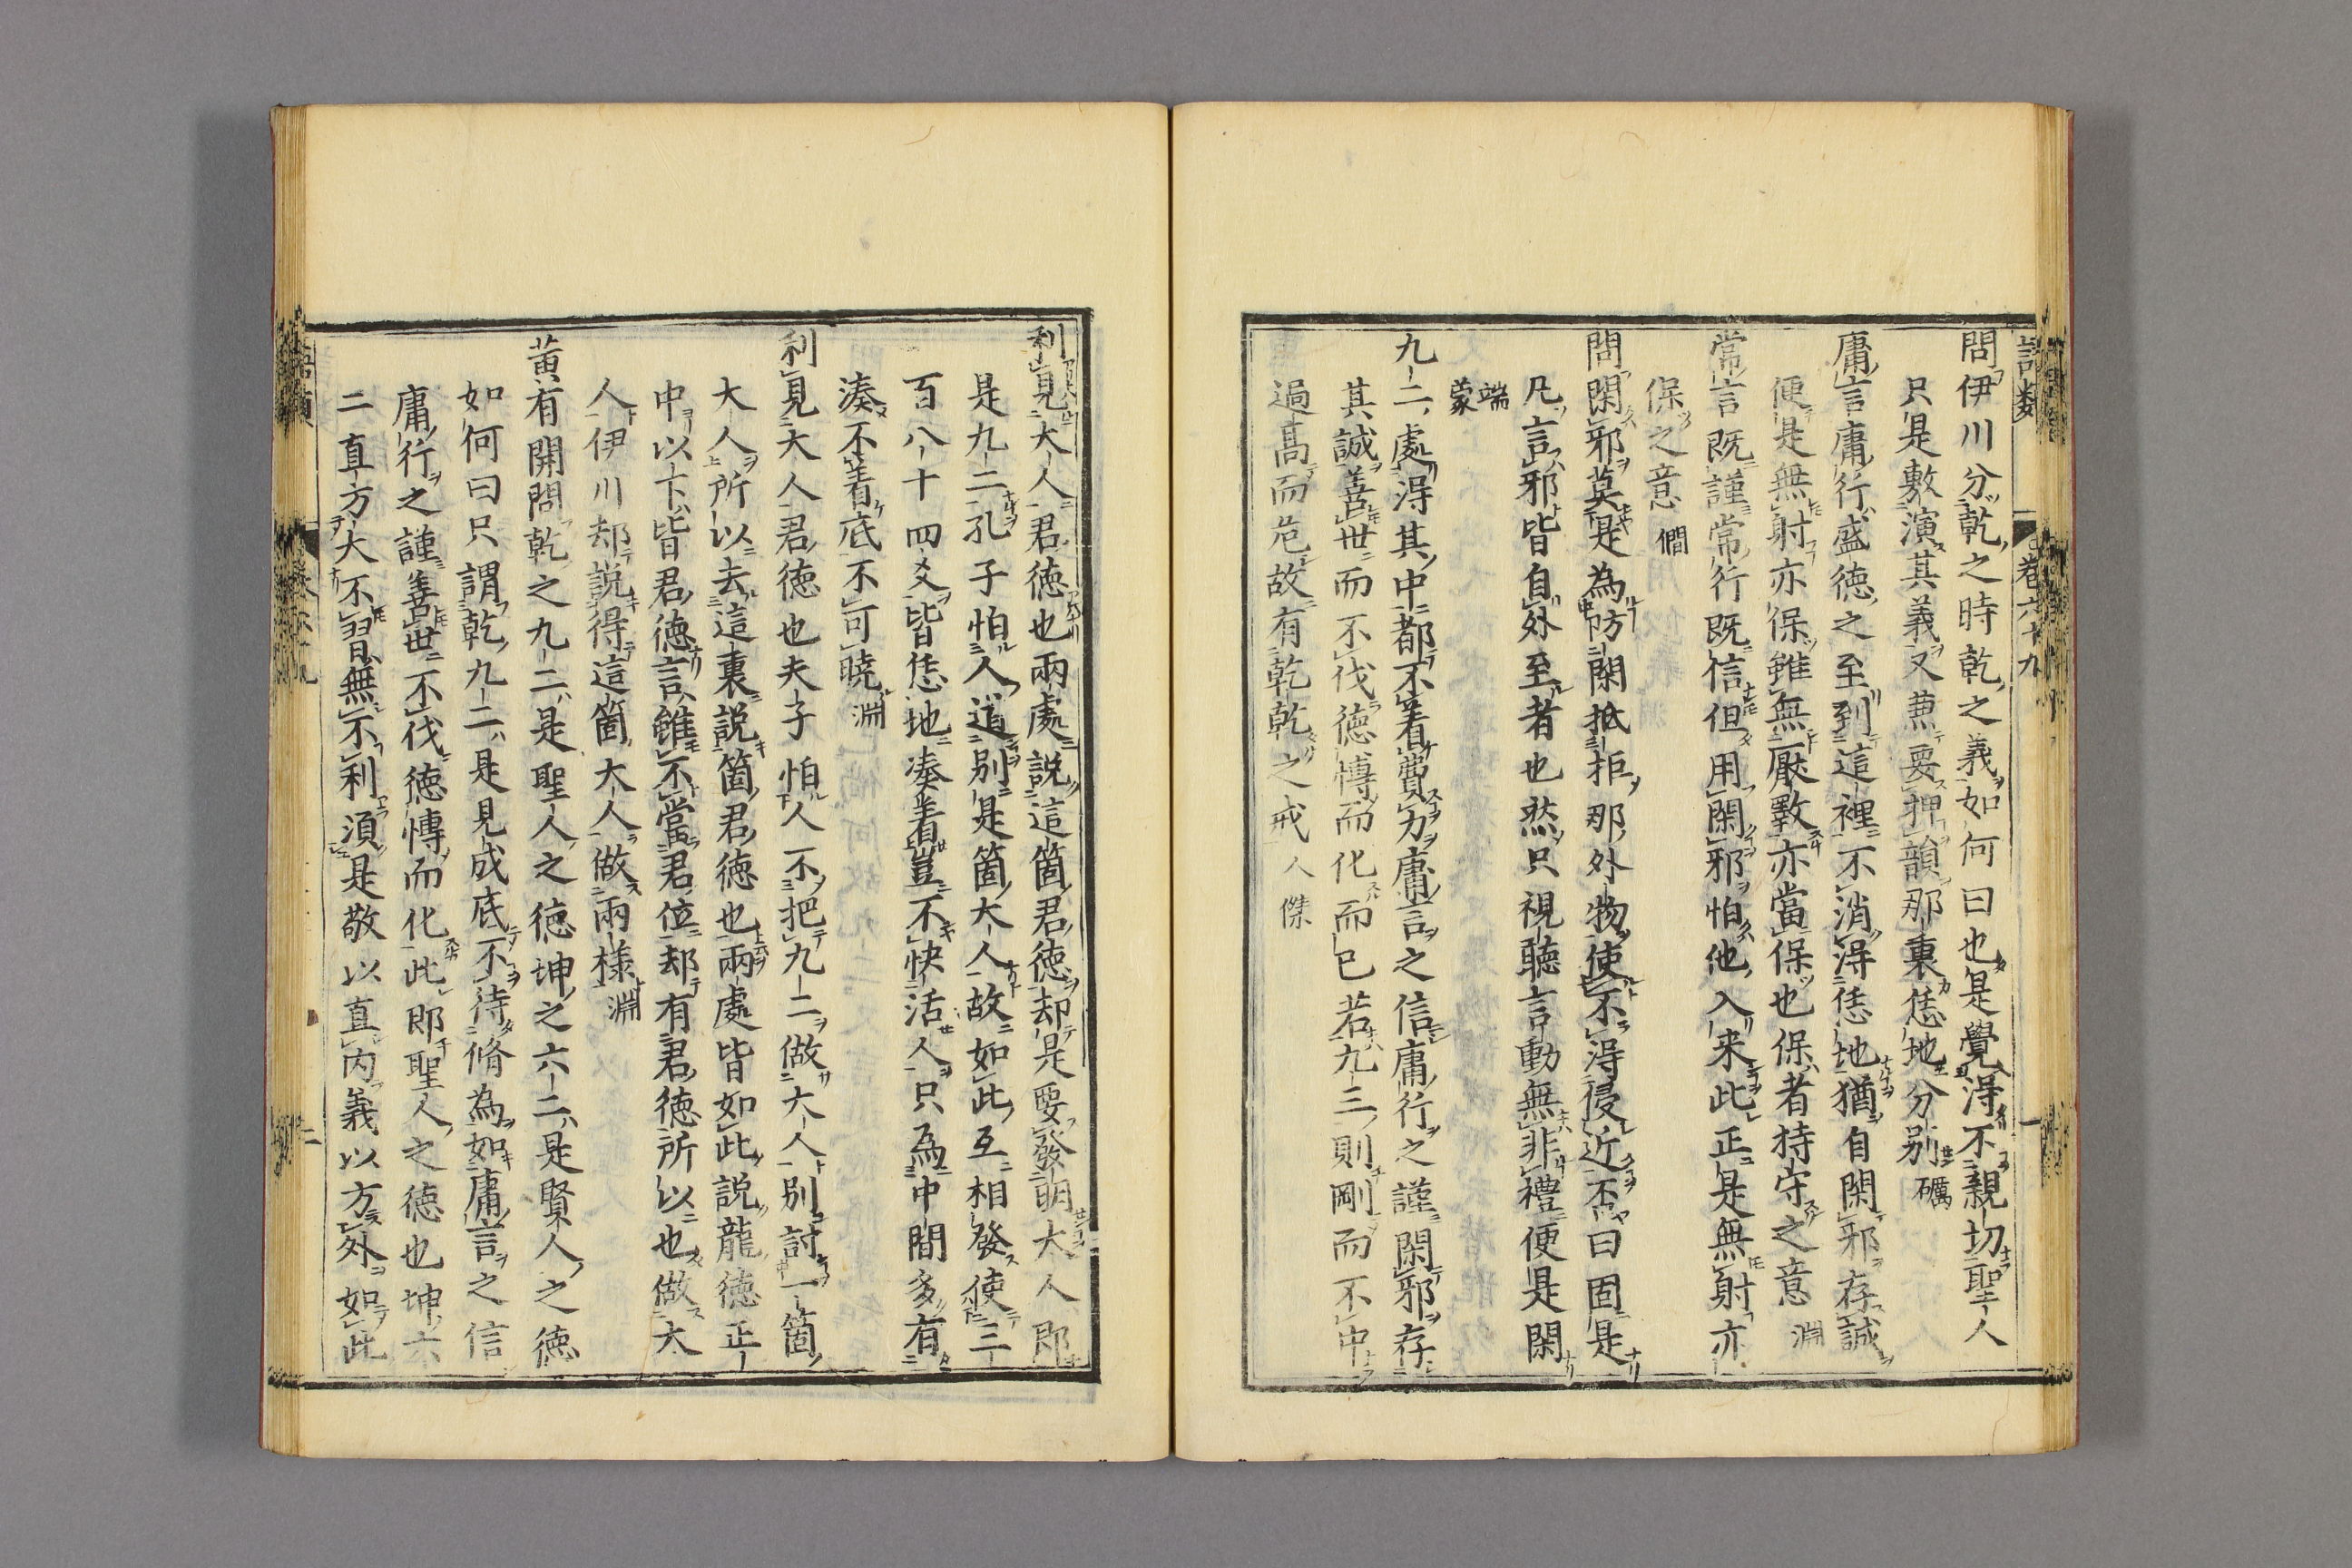 語類 卷六十九 一
問伊川分乾之時乾之義如何曰也是覺得不親切聖人
只是敷演其義又兼要押韻那裏恁地分别礪
庸言庸行盛徳之至到這裡不消得恁地猶自閑邪存誠
便是無射亦保雖無厭斁亦當保也保者持守之意淵
常言既謹常行既信但用閑邪怕他入来此正是無射亦
保之意僩
問閑邪莫是為防閑抵拒那外物使不得侵近否曰固是
凡言邪皆自外至者也然只視聽言動無非禮便是閑
端蒙
九二處得其中都不著費力庸言之信庸行之謹閑邪存
其誠善世而不伐徳愽而化而已若九三則剛而不中
過高而危故有乾乾之戒人傑
利見大人君徳也兩處說這箇君徳却是要發明大人即
是九二孔子怕人道别是箇大人故如此互相發使三
百八十四爻皆恁地凑著豈不快活人只為中間多有
凑不著底不可曉淵
利見大人君徳也夫子怕人不把九二做大人别討一箇
大人所以去這裏説箇君徳也兩處皆如此説龍徳正
中以下皆君徳言雖不當君位却有君徳所以也做大
人伊川却說得這箇大人做兩樣淵
黄有開問乾之九二是聖人之徳坤之六二是賢人之徳
如何曰只謂乾九二是見成底不待脩為如庸言之信
庸行之謹善世不伐徳愽而化此即聖人之徳也坤六
二直方大不習無不利須是敬以直内義以方外如此
二